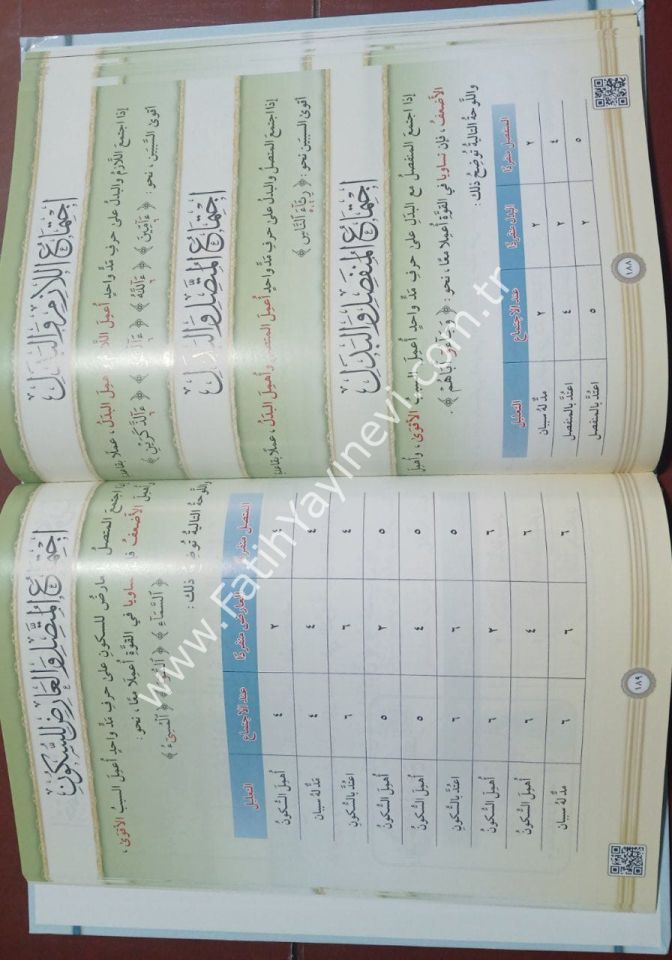 اجتماع اللازم والبدل
إذا اجتمعَ اللَّازمُ والبدلُ على حرفِ مدٍّ واحدٍ أُعمِلَ اللَّازمُ وأُهمِلَ البدلُ، عملًا
أقوى السببين، نحو: ﴿ءَآمِّينَ﴾ ﴿ءَآللَّهُ﴾ ﴿ءَآلذَّكَرَيْنِ﴾
اجتماع المتصل والبدل
إذا اجتمعَ المتصلُ والبدلُ على حرفِ مدٍّ واحدٍ أُعمِلَ المتصلُ وأُهمِلَ البدلُ، عملًا
أقوى السببين، نحو: ﴿رِئَآءَ ٱلنَّاسِ﴾
اجتماع المنفصل والبدل
إذا اجتمعَ المنفصلُ مع البدلِ على حرفِ مدٍّ واحدٍ أُعمِلَ السببُ الأقوَى، وأُهمِلَ
الأضعفُ، فإن تساويا في القوَّةِ أُعمِلا معًا، نحو: ﴿وَجَآءُوٓ أَبَاهُمْ﴾.
واللَّوحةُ التاليةُ تُوضِحُ ذلك:
المنفصل منفردًا البدل منفردًا عند الاجتماع التعليل
٢ ٢ ٢ مدٌّ لهُ سببان
٤ ٢ ٤ اعتُدَّ بالمنفصل
٥ ٢ ٥ اعتُدَّ بالمنفصل
١٨٨
اجتماع المتصل والعارض للسكون
إذا اجتمعَ المتصلُ والعارضُ للسكونِ على حرفِ مدٍّ واحدٍ أُعمِلَ السببُ الأقوَى،
وأُهمِلَ الأضعفُ فإن تساويا في القوَّةِ أُعمِلا معًا، نحو:
﴿ٱلسَّمَآءِ﴾ ﴿ٱلسُّوٓءَ﴾ ﴿ٱلنَّسِيٓءُ﴾
واللَّوحةُ التاليةُ تُوضِحُ ذلك:
المتصل منفردًا العارض منفردًا عند الاجتماع التعليل
٤ ٢ ٤ أُهمِلَ السُّكونُ
٤ ٤ ٤ مَدٌّ لهُ سببان
٤ ٦ ٦ اعتُدَّ بالسُّكونِ
٥ ٢ ٥ أُهمِلَ السُّكونُ
٥ ٤ ٥ أُهمِلَ السُّكونُ
٥ ٦ ٦ اعتُدَّ بالسُّكونِ
٦ ٢ ٦ أُهمِلَ السُّكونُ
٦ ٤ ٦ أُهمِلَ السُّكونُ
٦ ٦ ٦ مدٌّ لهُ سببان
١٨٩
www.FatihYayinevi.com.tr